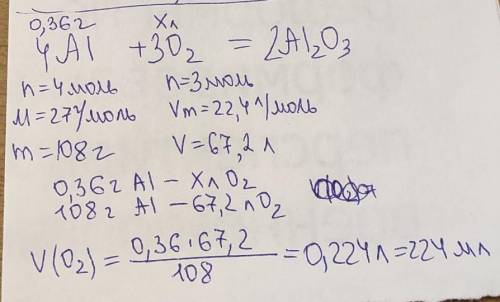 0,36г Xл
4Al + 3O₂ = 2Al₂O₃
n=4моль n=3моль
M=27г/моль Vm=22,4л/моль
m=108г V=67,2л
0,36г Al – Xл O₂
108г Al – 67,2л O₂
V(O₂) = 0,36·67,2 / 108 = 0,224л = 224мл